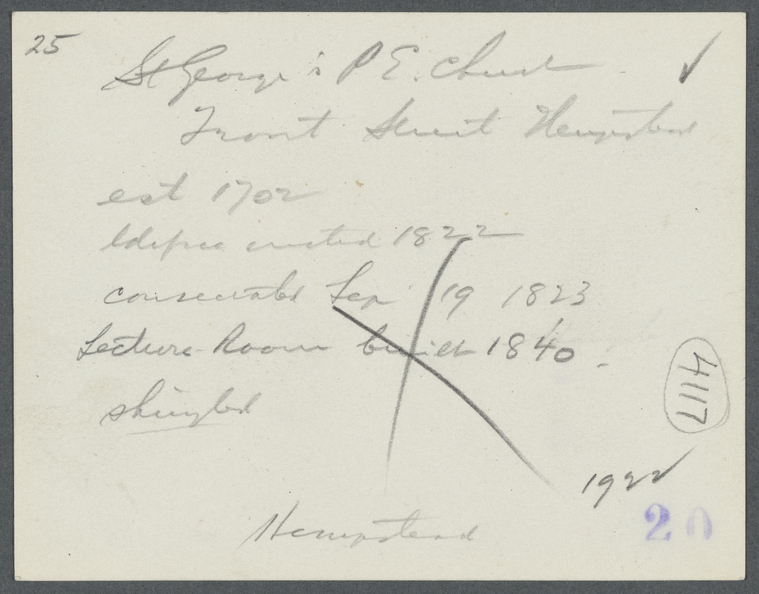 25
St George's P E. Church
Front Street Hempstead
est 1702
Edifice erected 1822
consecrated Sep 19 1823
Lecture Room built 1840.
shingled
4117
1922
Hempstead
20